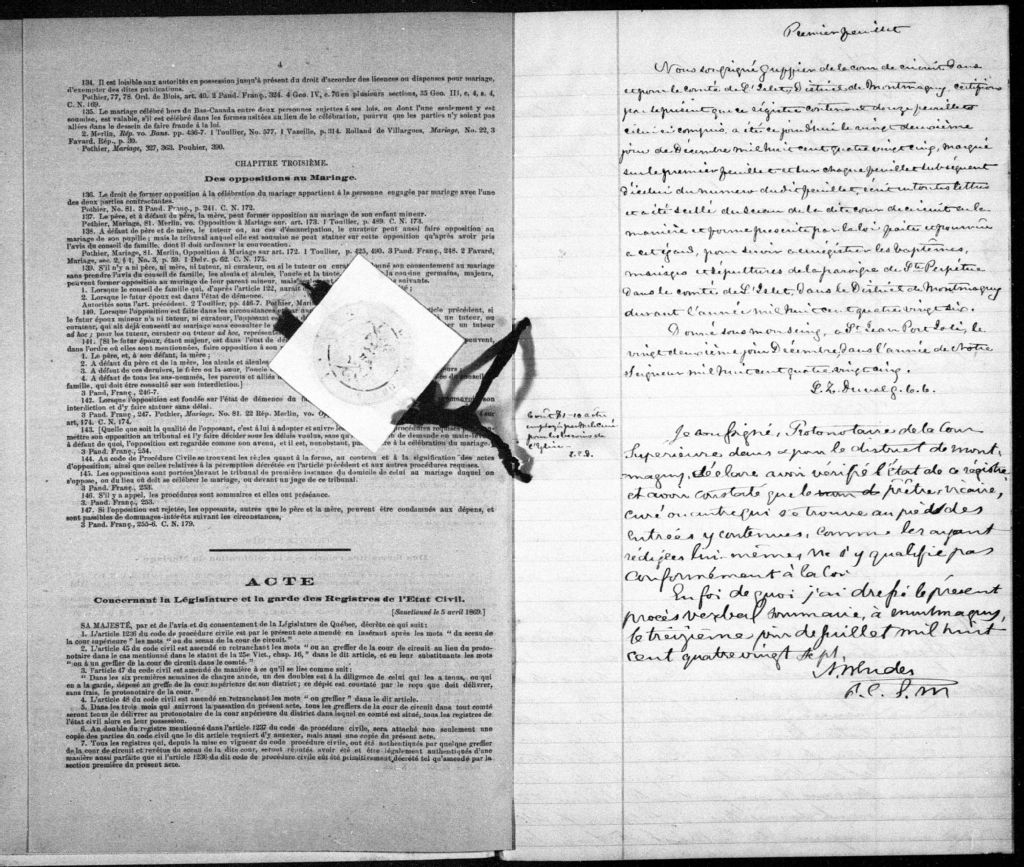 4
134. Il est loisible aux autorités en possession jusqu'à présent du droit d'accorder des licences ou dispenses pour mariage,
d'exempter des dites publications.
Pothier, 77, 78. Ord. de Blois, art. 40. 2 Pand. Franç., 324. 4 Geo. IV, c. 76 en plusieurs sections, 35 Geo. III, c, 4, s. 4,
C. N. 169.
135. Le mariage célébré hors du Bas-Canada entre deux personnes sujettes à ses lois, ou dont l'une seulement y est
soumise, est valable, s'il est célébré dans les formes usitées au lieu de la célébration, pourvu que les parties n'y soient pas
allées dans le dessein de faire fraude à la loi.
2. Merlin, Rép. vo. Bans. pp. 436-7. 1 Toullier, No. 577, 1 Vazeille, p. 314. Rolland de Villargues, Mariage, No. 22, 3
Favard. Rép., p. 39.
Pothier, Mariage, 327, 363. Pouhier, 390.
CHAPITRE TROISIÈME.
Des oppositions au Mariage.
136. Le droit de former opposition à la célébration du mariage appartient à la personne engagée par mariage avec l'une
des deux parties contractantes.
Pothier, No. 81. 3 Pand. Franç., p. 241. C. N. 172.
137. Le père, et à défaut du père, la mère, peut former opposition au mariage de son enfant mineur.
Pothier, Mariage, 81. Merlin, vo. Opposition à Mariage sur. art. 173. 1 Toullier, p. 489. C. N. 173.
138. A défaut de père et de mère, le tuteur ou, au cas d'émancipation, le curateur peut aussi faire opposition au
mariage de son pupille; mais le tribunal auquel elle est soumise ne peut statuer sur cette opposition qu'après avoir pris
l'avis du conseil de famille, dont il doit ordonner la convocation.
Pothier, Mariage, 81. Merlin, Opposition à Mariage sur art. 172. 1 Toullier, p. 423, 490. 3 Pand. Franç., 248. 2 Favard,
Mariage, sec. 2, § 4, No. 3, p. 59. 1 Delv. p. 62. C. N. 175.
139. S'il n'y a ni père, ni mère, ni tuteur, ni curateur, ou si le tuteur ou donné son consentement au mariage
sans prendre l'avis du conseil de famille, les aïeuls et aïeules, l'oncle et la tante cousine germains, majeurs,
peuvent former opposition au mariage de leur parent mineur, mais suivants.
1. Lorsque le conseil de famille qui, d'après l'article 122, aurait
2. Lorsque le futur époux est dans l'état de démence.
Autorités sous l'art. précédent. 2 Toullier, pp. 446-7. Pothier, Mari
140. Lorsque l'opposition est faite dans les circonstances précédent, si
le futur époux mineur n'a ni tuteur, ni curateur, l'opposant est un tuteur, ou
curateur, qui ait déjà consenti au mariage sans consulter un tuteur
ad hoc; pour les tuteur, curateur ou tuteur ad hoc, représenter
141. [Si le futur époux, étant majeur, est dans l'état de peuvent,
dans l'ordre où elles sont mentionnées, faire opposition à son
1. Le père, et, à son défaut, la mère;
2. A défaut du père et de la mère, les aïeuls et aïeules
3. A défaut de ces derniers, le frère ou la sœur, l'oncle
4. A défaut de tous les sus-nommés, les parents et alliés du conseil de
famille, qui doit être consulté sur son interdiction.]
3 Pand. Franç., 246-7.
142. Lorsque l'opposition est fondée sur l'état de démence du
interdiction et d'y faire statuer sans délai.
3 Pand. Franç., 247. Pothier, Mariage. No. 81. 22 Rép. Merlin, vo. Op sur
art, 174. C. N. 174.
143. [Quelle que soit la qualité de l'opposant, c'est à lui à adopter et suivre les procédures requises
mettre son opposition au tribunal et l'y faire décider sous les délais voulus, sans de demande en main-levée;
à défaut de quoi, l'opposition est regardée comme non avenu, et il est, nonobstant, à la célébration du mariage.]
3 Pand. Franç., 254.
144. Au code de Procédure Civile se trouvent les règles quant à la forme, au contenu et à la signification des actes
d'opposition, ainsi que celles relatives à la péremption décrétée en l'article précédent et aux autres procédures requises.
145. Les oppositions sont portées devant le tribunal de première instance du domicile de celui au mariage duquel on
s'oppose, ou du lieu où doit se célébrer le mariage, ou devant un juge de ce tribunal.
3 Pand. Franç., 253.
146. S'il y a appel, les procédures sont sommaires et elles ont préséance.
3. Pand. Franç., 253.
147. Si l'opposition est rejetée, les opposants, autres que le père et la mère, peuvent être condamnés aux dépens, et
sont passibles de dommages-intérêts suivant les circonstances,
3 Pand. Franç., 255-6. C. N. 179.
ACTE
Concernant la Législature et la garde des Registres de l'Etat Civil.
[Sanctionné le 5 avril 1869.]
SA MAJESTÉ, par et de l'avis et du consentement de la Législature de Québec, décrète ce qui suit:
1. L'article 1236 du code de procédure civile est par le présent acte amendé en insérant après les mots "du sceau de
la cour supérieure" les mots "ou du sceau de la cour de circuit."
2. L'article 45 du code civil est amendé en retranchant les mots "ou au greffier de la cour de circuit au lieu du proto-
notaire dans le cas mentionné dans le statut de la 25e Vict., chap. 16," dans le dit article, et en leur substituants les mots
"ou à un greffier de la cour de circuit dans le comté."
3. l'article 47 du code civil est amendé de manière à ce qu'il se lise comme suit:
"Dans les six premières semaines de chaque année, un des doubles est à la diligence de celui qui les a tenus, ou qui
en a la garde, déposé au greffe de la cour supérieure de son district; ce dépôt est constaté par le reçu que doit délivrer,
sans frais, le protonotaire de la cour."
4. L'article 48 du code civil est amendé en retranchant les mots "ou greffier" dans le dit article.
5. Dans les trois mois qui suivront la passation du présent acte, tous les greffiers de la cour de circuit dans tout comté
seront tenus de délivrer au protonotaire de la cour supérieure du district dans lequel ce comté est situé, tous les registres de
l'état civil alors en leur possession.
6. Au double du registre mentionné dans l'article 1237 du code de procédure civile, sera attaché non seulement une
copie des parties du code civil que le dit article requiert d'y annexer, mais aussi une copie du présent acte.
7. Tous les registres qui, depuis la mise en vigueur du code procédure civile, ont été authentiqués par quelque greffier
de la cour de circuit et revêtus du sceau de la dite cour, seront réputés avoir été et être légalement authentiqués d'une
manière aussi parfaite que si l'article 1236 du dit code de procédure civile eût été primitivement décrété tel qu'amendé par la
section première du présent acte.
Premier feuillet
Nous soussigné Greffier de la cour de circuit dans
et pour le comté de L'Islet, District de Montmagny, certifions
par le présent que ce registre contenant douze feuillets
celui-ci compris, a été ce jourd'hui le vingt deuxième
jour de Décembre mil huit cent quatre vingt cinq, marqué
sur le premier feuillet et sur chaque feuillet subséquent
d'icelui du numero du dit feuillet, écrit en toutes lettres
et a été scellé du sceau de la dite cour de circuit en la
manière et forme prescrite par la loi faite et pourvue
a cet égard, pour servir a enrégistrer les baptêmes,
mariages et sépultures de la paroisse de Ste Perpétue
dans le comté de L'Islet, dans le District de Montmagny
durant l'année mil huit cent quatre vingt six.
Donné sous mon seing, a St Jean Port Joli, le
vingt deuxième jour Décembre, dans l'année de Notre
Seigneur mil huit cent quatre vingt cinq.
G. C. C.
Je soussigné, Protonotaire de la Cour
Supérieure dans & pour le district de Mont-
magny, déclare avoir vérifié l'état de ce registre
et avoir constaté que le prêtre, vicaire,
curé ou autre qui se trouve au pied des
entrées y contenues, comme les ayant
rédigées lui-même, ne s'y qualifie pas
conformément à la loi
En foi de quoi j'ai dressé le présent
procès verbal sommaire, à Montmagny,
le treizieme jour de Juillet mil huit
cent quatre vingt sept.
P. C. S. M